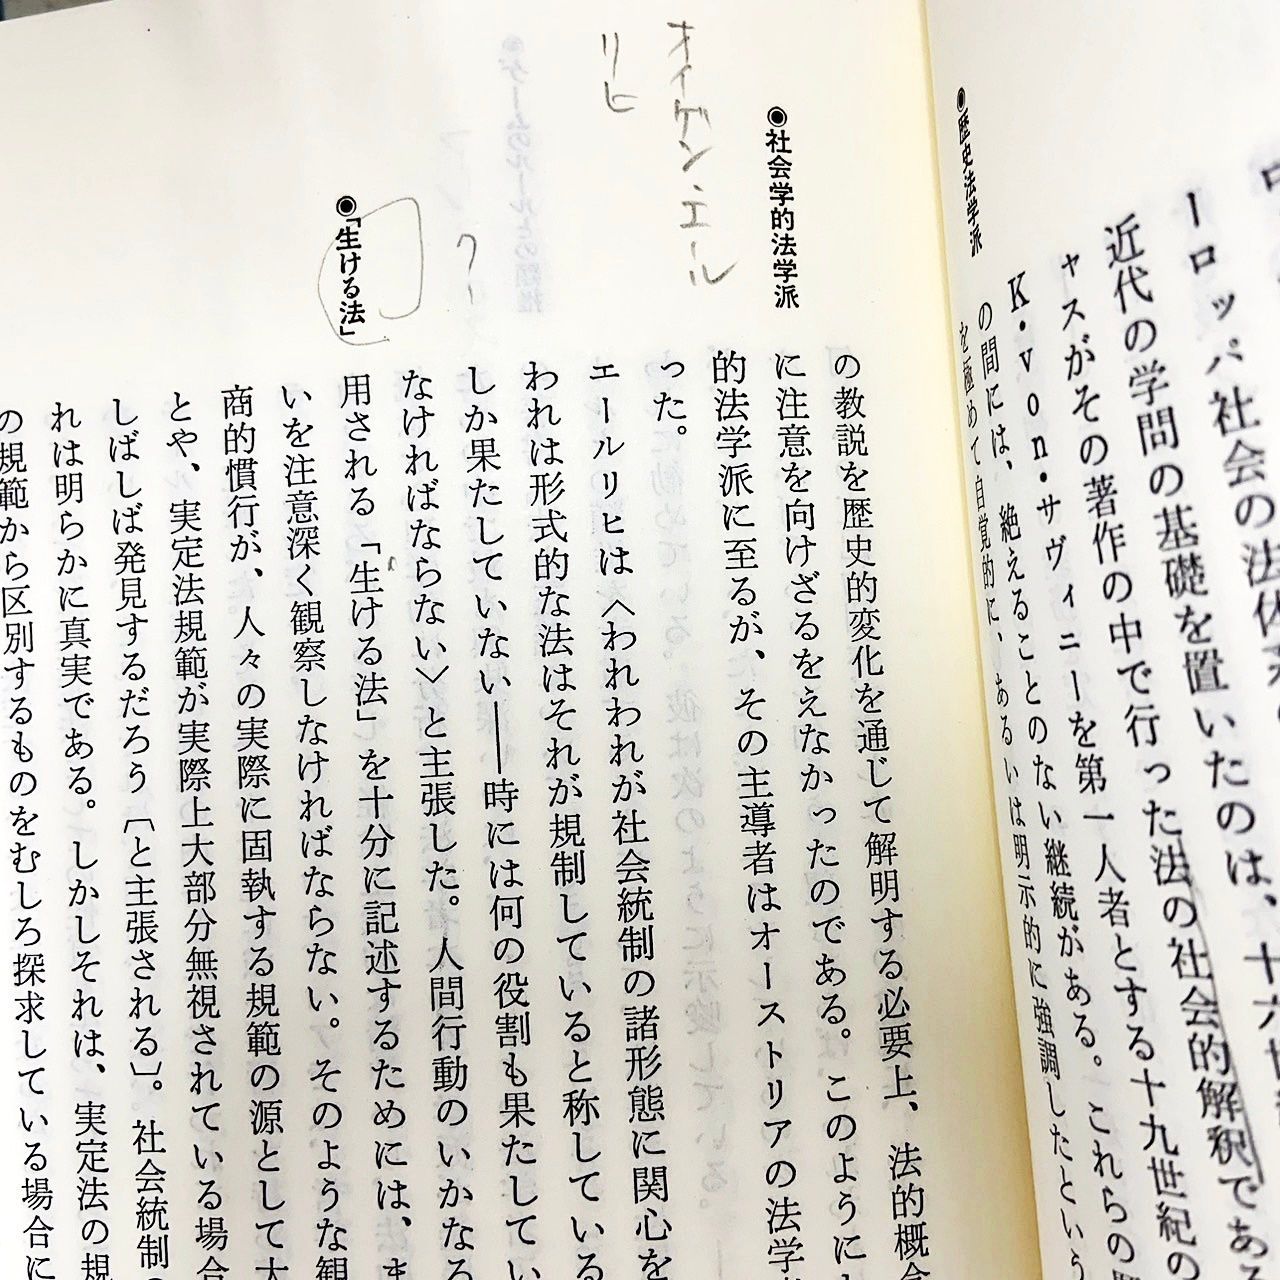 ーロッパ社会の法体系の
近代の学問の基礎を置いたのは、十六世
ャスがその著作の中で行った法の社会的解釈である
K・von・サヴィニーを第一人者とする十九世紀の
の間には、絶えることのない継続がある。これらの
を極めて自覚的に、あるいは明示的に強調したという
◉歴史法学派
の教説を歴史的変化を通じて解明する必要上、法的概念
に注意を向けざるをえなかったのである。このように
的法学派に至るが、その主導者はオーストリアの法学者
った。
◉社会学的法学派
オイゲン・エール
リヒ
エールリヒは〈われわれが社会統制の諸形態に関心を
われは形式的な法はそれが規制していると称している
しか果たしていない――時には何の役割も果たしてい
なければならない〉と主張した。人間行動のいかなる
用される「生ける法」を十分に記述するためには、ま
◉「生ける法」
いを注意深く観察しなければならない。そのような観
商的慣行が、人々の実際に固執する規範の源として大
とや、実定法規範が実際上大部分無視されている場合
しばしば発見するだろう〔と主張される〕。社会統制の
れは明らかに真実である。しかしそれは、実定法の規
の規範から区別するものをむしろ探求している場合に